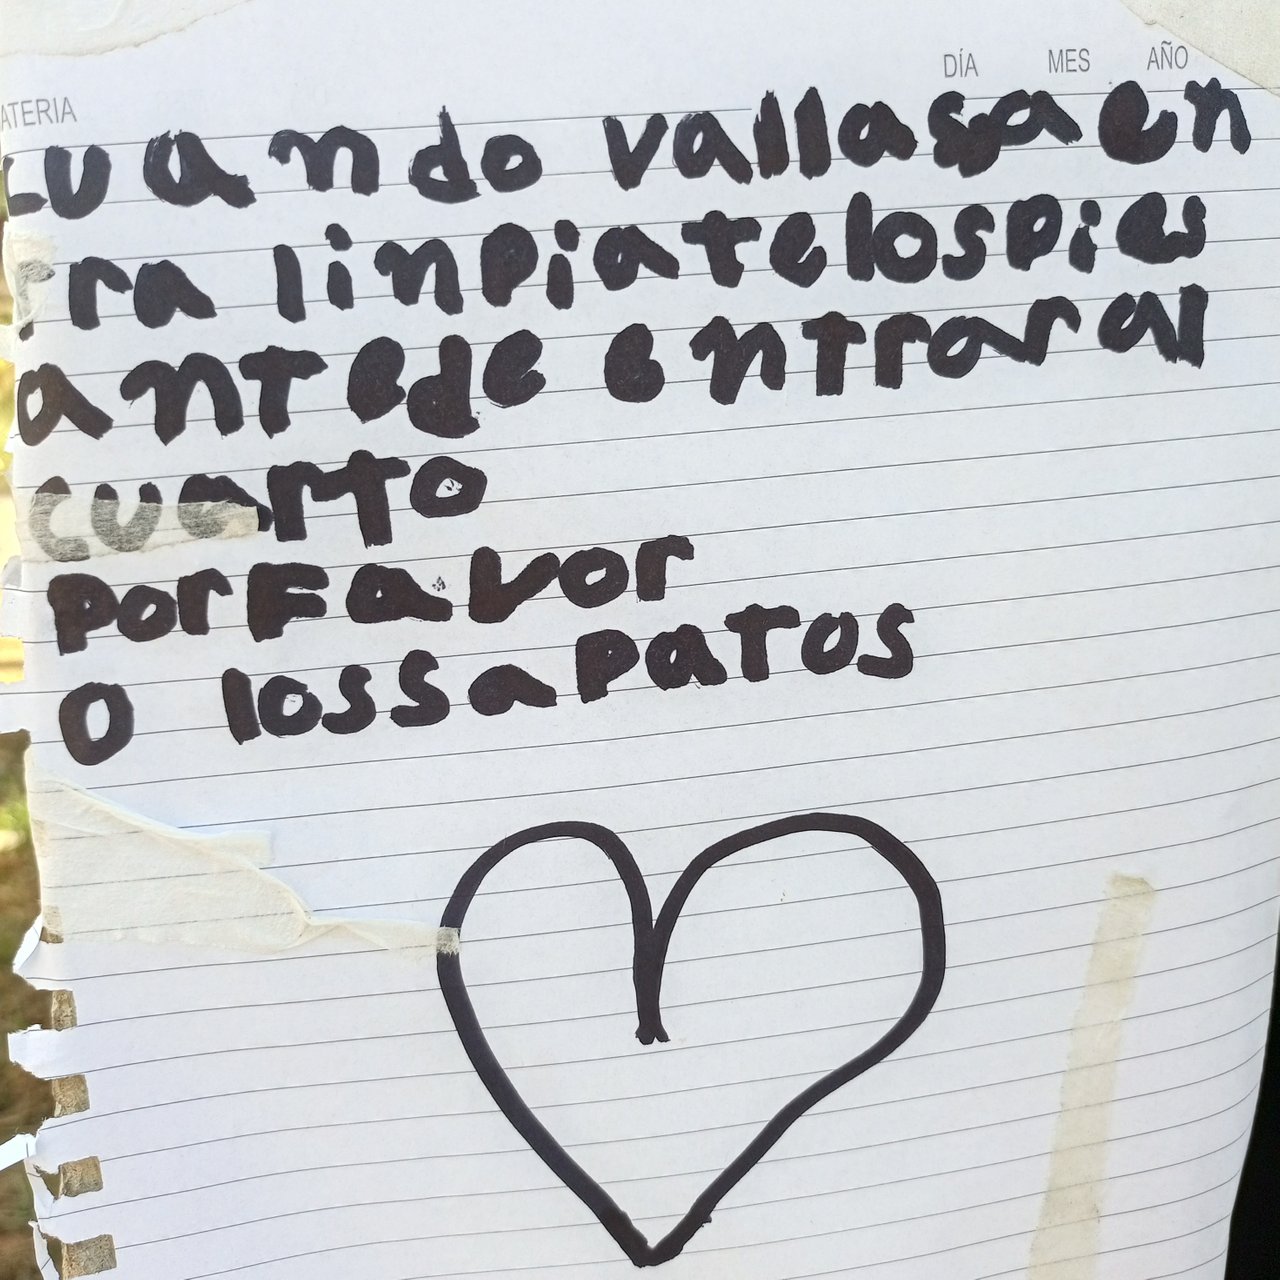 ATERIA
DÍA MES AÑO
cuando vallasa en
tra linpiatelospies
antede entrar al
cuarto
porfavor
o lossapatos